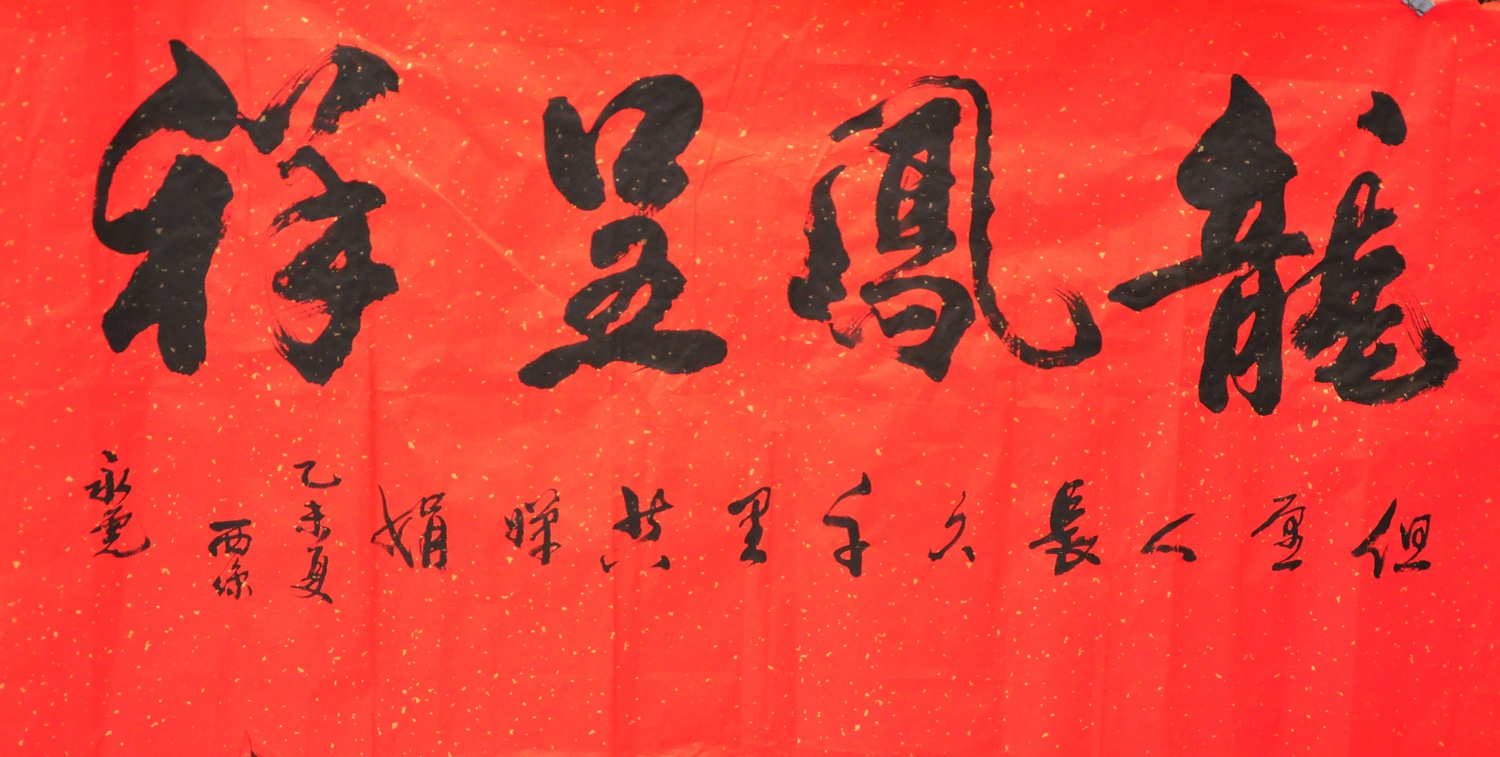 龍鳳呈祥
但願人長久千里共嬋娟
乙未夏
西
永